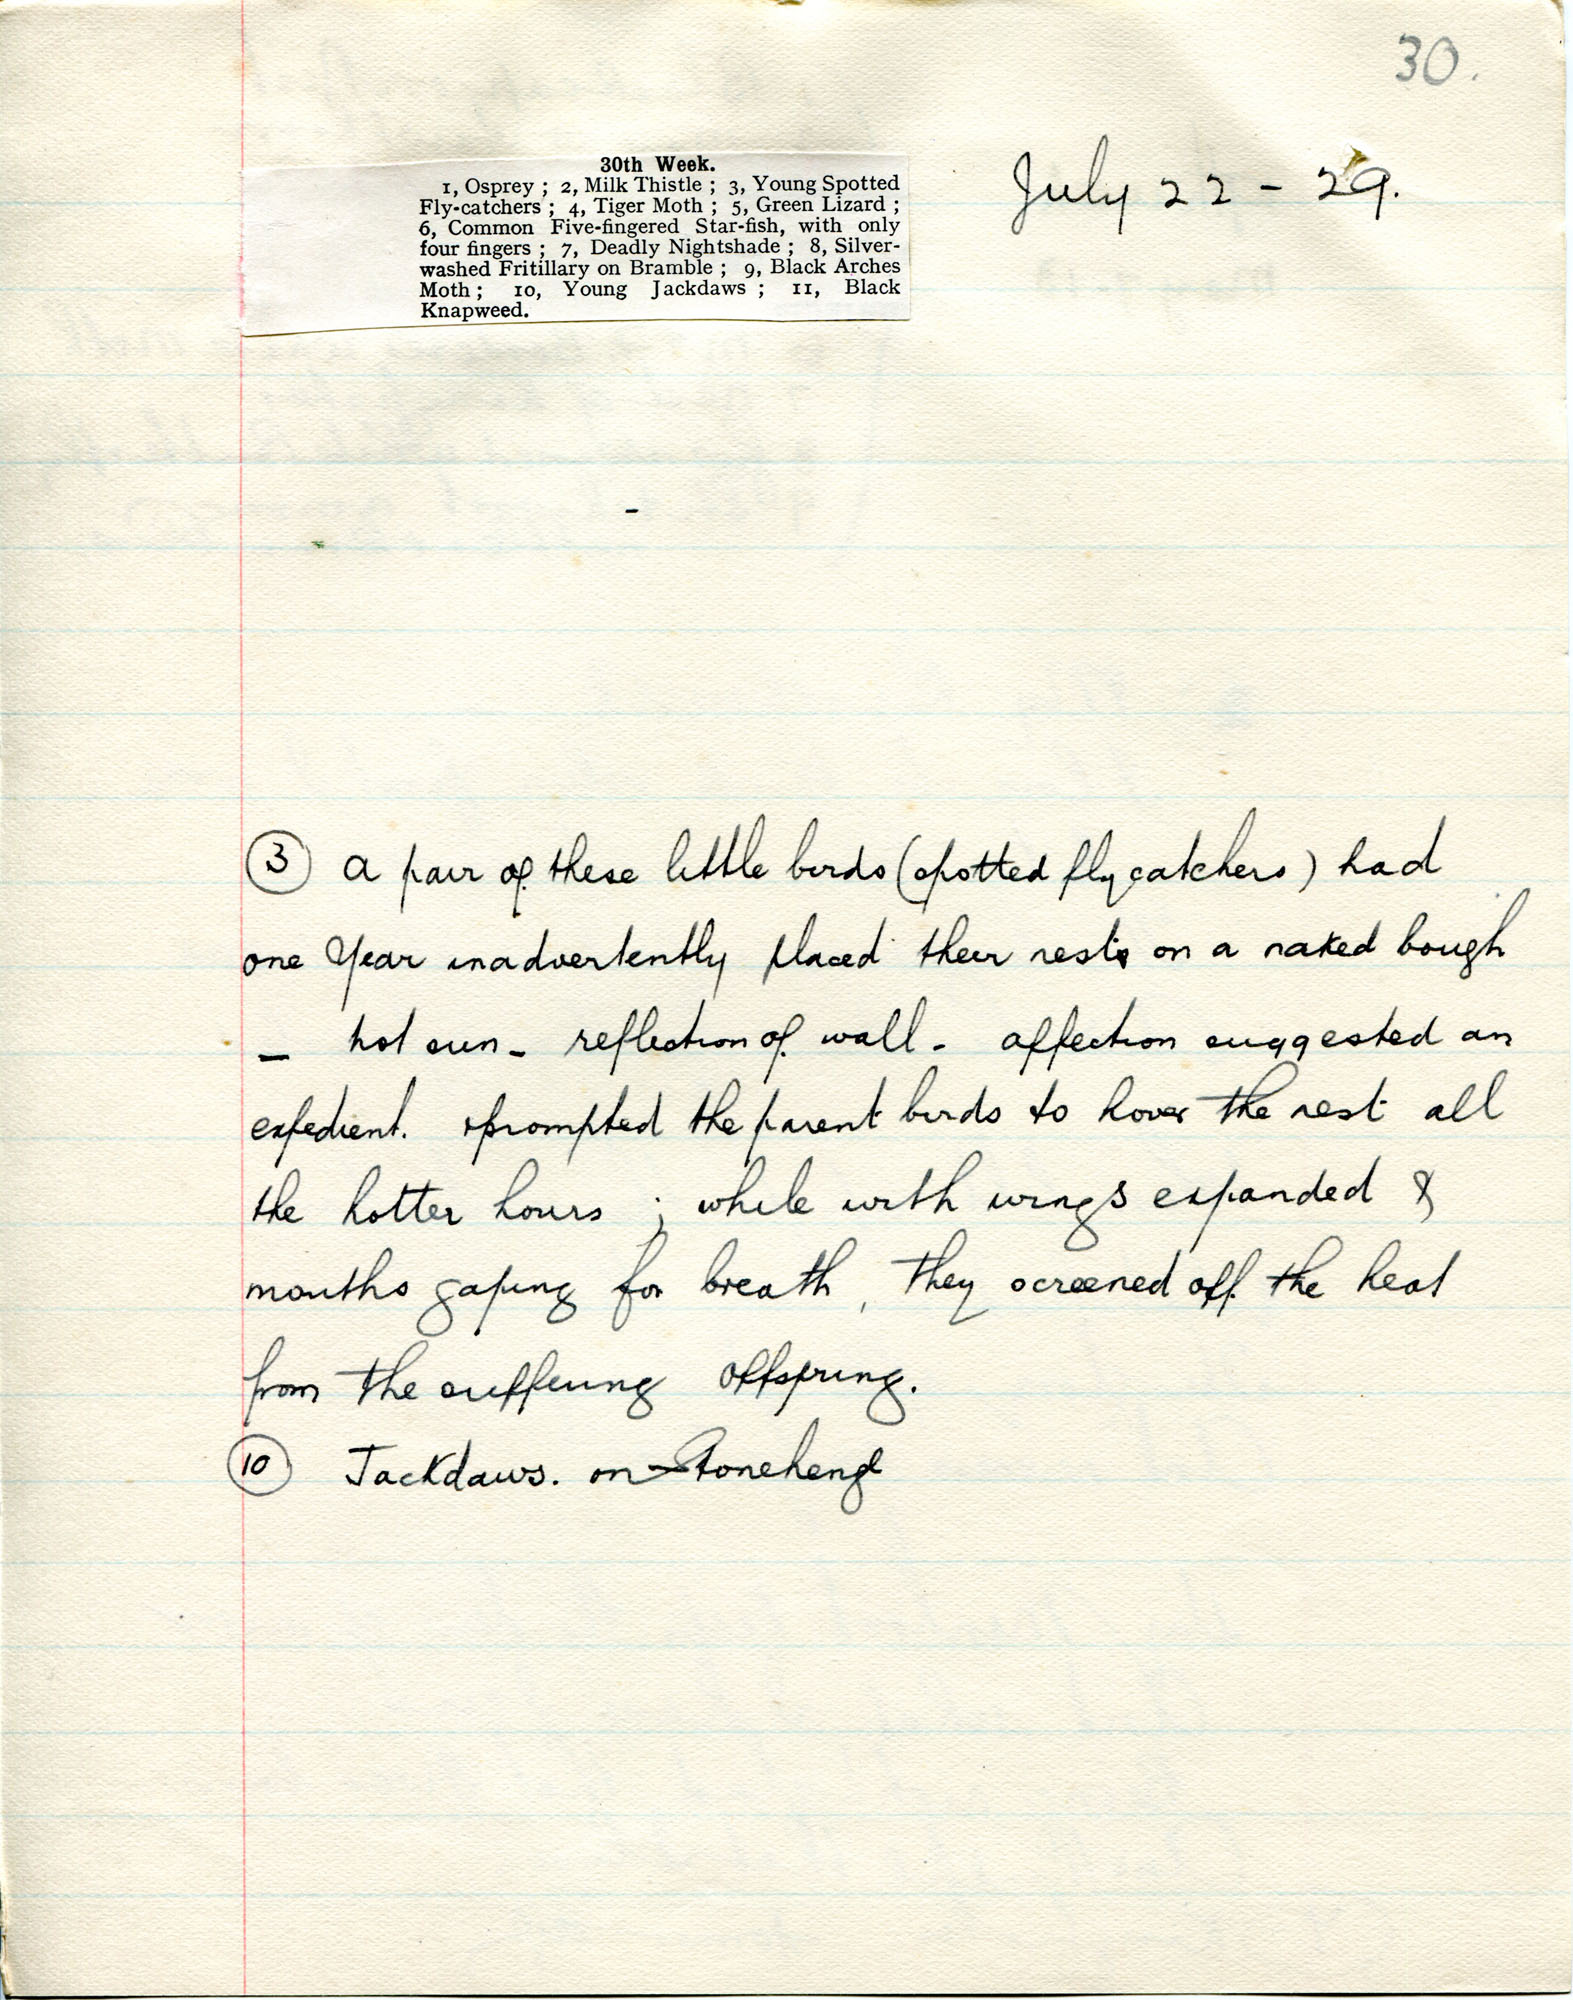 30.
30th Week.
1, Osprey ; 2, Milk Thistle ; 3, Young Spotted
Fly-catchers ; 4, Tiger Moth ; 5, Green Lizard ;
6, Common Five-fingered Star-fish, with only
four fingers ; 7, Deadly Nightshade ; 8, Silver-
washed Fritillary on Bramble ; 9, Black Arches
Moth ; 10, Young Jackdaws ; 11, Black
Knapweed.
July 22 - 29.
3 a pair of these little birds (spotted fly catchers) had
one Year inadvertently placed their nests on a naked bough
- hot sun - reflection of wall - affection suggested an
expedient. prompted the parent birds to hover the nest all
the hotter hours ; while with wings expanded &
mouths gaping for breath, they screened off the heat
from the suffering offspring.
10 Jackdaws. on Stonehenge